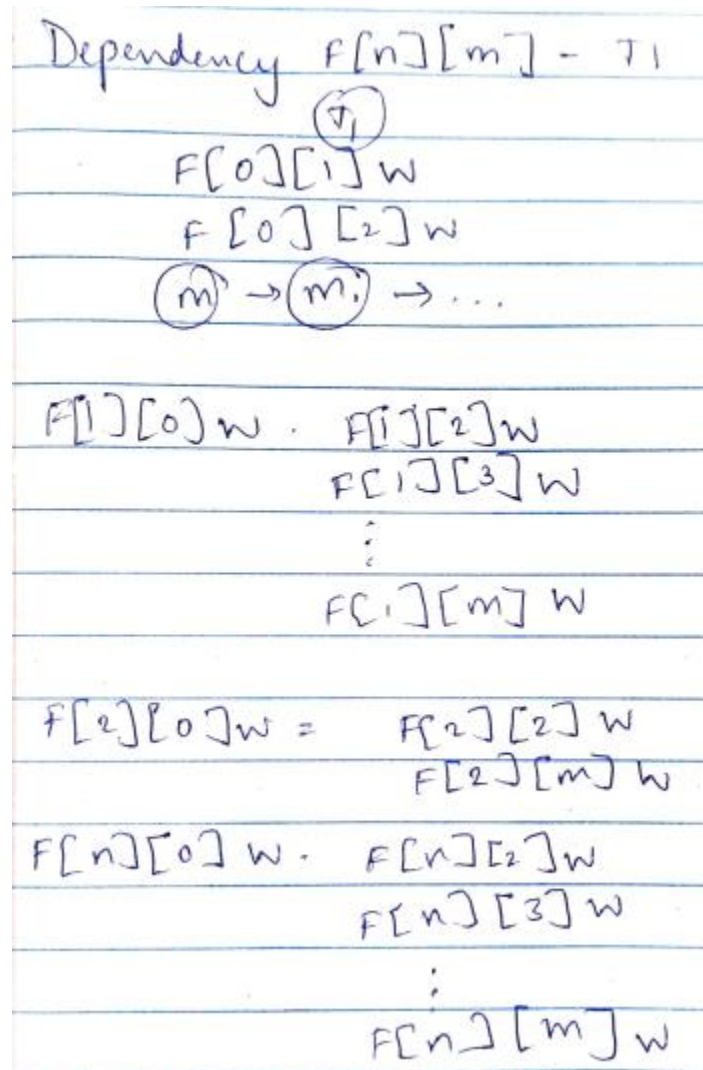 Dependency F[n][m] - T1
T1
F[0][1] W
F[0][2] W
m → m. → ...
F[1][0] W . F[1][2] W
F[1][3] W
⋮
F[1][m] W
F[2][0] W = F[2][2] W
F[2][m] W
F[n][0] W . F[n][2] W
F[n][3] W
⋮
F[n][m] W